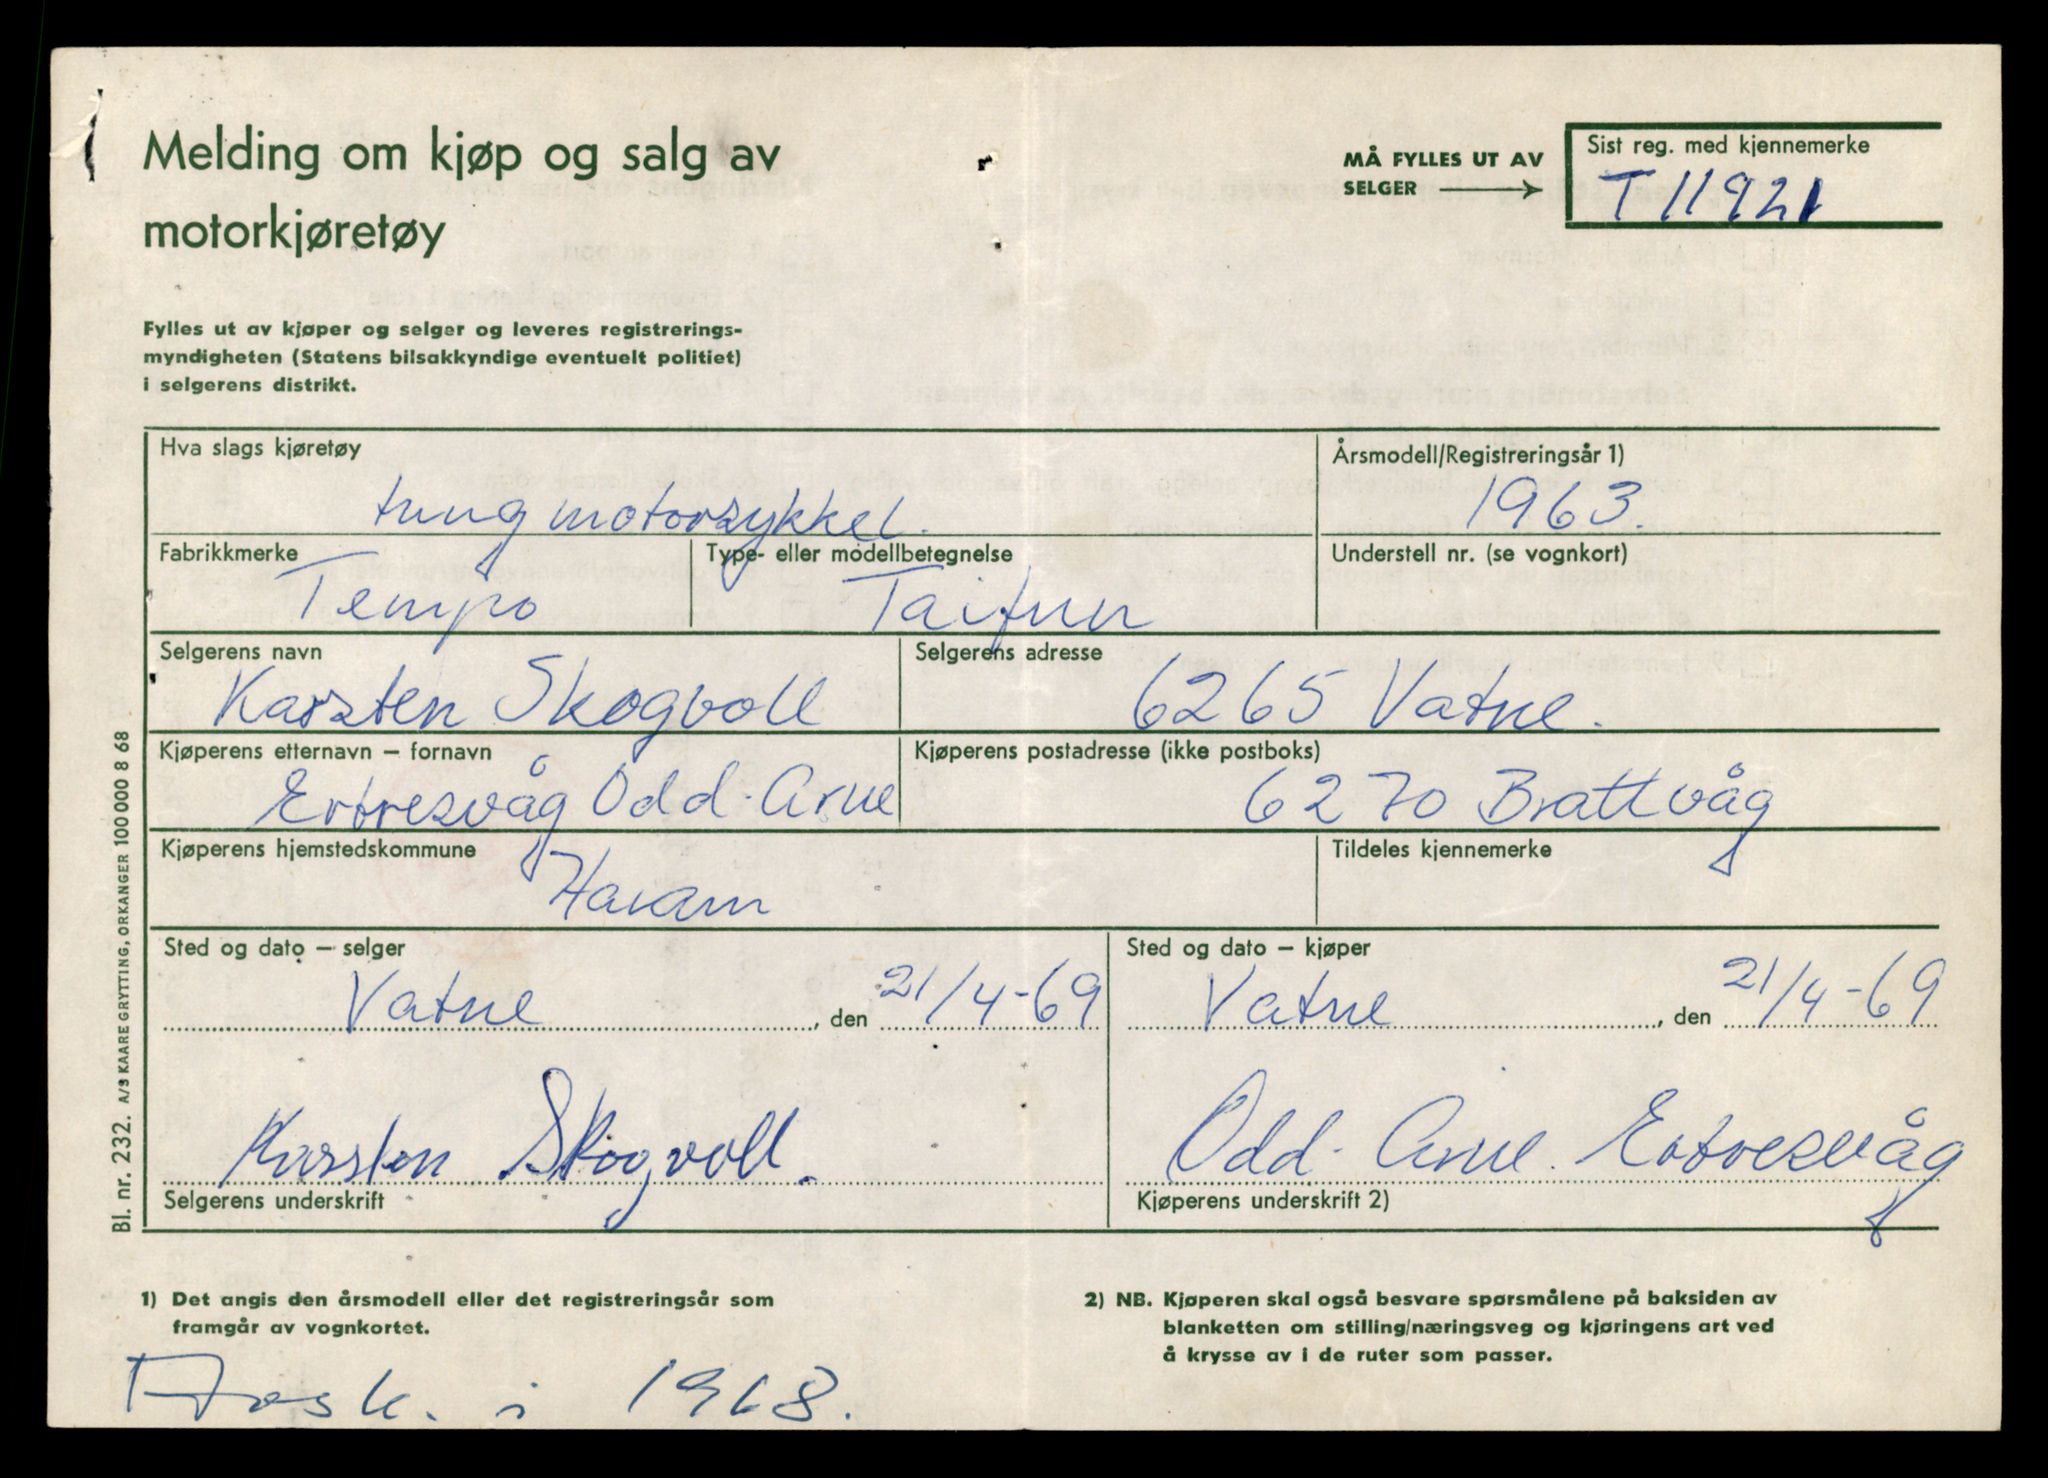 Melding om kjøp og salg av
motorkjøretøy
MÅ FYLLES UT AV
SELGER
Sist reg. med kjennemerke
T 11921
Fylles ut av kjøper og selger og leveres registrerings-
myndigheten (Statens bilsakkyndige eventuelt politiet)
i selgerens distrikt.
Hva slags kjøretøy
tung motorsykkel.
Årsmodell/Registreringsår 1)
1963.
Fabrikkmerke
Tempo
Type- eller modellbetegnelse
Taifun
Understell nr. (se vognkort)
Selgerens navn
Karsten Skogvoll
Selgerens adresse
6265 Vatne.
Kjøperens etternavn – fornavn
Ertresvåg Odd-Arne
Kjøperens postadresse (ikke postboks)
6270 Brattvåg
Kjøperens hjemstedskommune
Haram
Tildeles kjennemerke
Sted og dato – selger
Vatne, den 21/4-69
Sted og dato – kjøper
Vatne, den 21/4-69
Karsten Skogvoll.
Selgerens underskrift
Odd-Arne Ertresvåg
Kjøperens underskrift 2)
1) Det angis den årsmodell eller det registreringsår som
framgår av vognkortet.
2) NB. Kjøperen skal også besvare spørsmålene på baksiden av
blanketten om stilling/næringsveg og kjøringens art ved
å krysse av i de ruter som passer.
i 1968.
Bl. nr. 232. A/S KAARE GRYTTING, ORKANGER 100 000 8 68